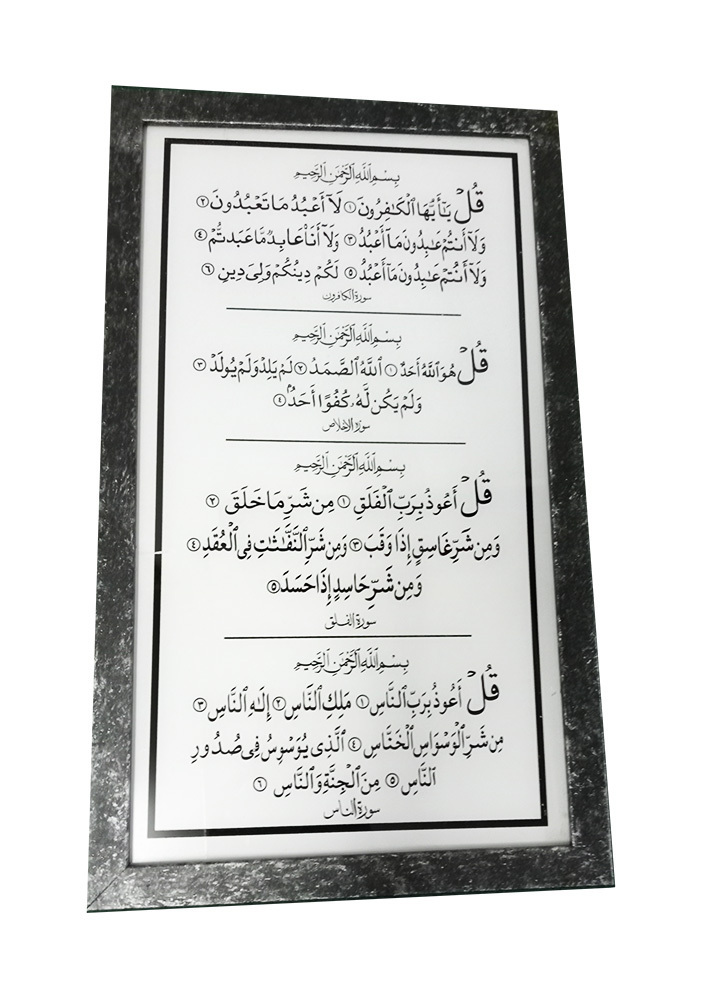 بِسْمِ اللَّهِ الرَّحْمَٰنِ الرَّحِيمِ
قُلْ يَٰٓأَيُّهَا ٱلْكَٰفِرُونَ ١ لَآ أَعْبُدُ مَا تَعْبُدُونَ ٢
وَلَآ أَنتُمْ عَٰبِدُونَ مَآ أَعْبُدُ ٣ وَلَآ أَنَا۠ عَابِدٌ مَّا عَبَدتُّمْ ٤
وَلَآ أَنتُمْ عَٰبِدُونَ مَآ أَعْبُدُ ٥ لَكُمْ دِينُكُمْ وَلِىَ دِينِ ٦
سورة الكافرون
بِسْمِ اللَّهِ الرَّحْمَٰنِ الرَّحِيمِ
قُلْ هُوَ ٱللَّهُ أَحَدٌ ١ ٱللَّهُ ٱلصَّمَدُ ٢ لَمْ يَلِدْ وَلَمْ يُولَدْ ٣
وَلَمْ يَكُن لَّهُۥ كُفُوًا أَحَدٌۢ ٤
سورة الإخلاص
بِسْمِ اللَّهِ الرَّحْمَٰنِ الرَّحِيمِ
قُلْ أَعُوذُ بِرَبِّ ٱلْفَلَقِ ١ مِن شَرِّ مَا خَلَقَ ٢
وَمِن شَرِّ غَاسِقٍ إِذَا وَقَبَ ٣ وَمِن شَرِّ ٱلنَّفَّٰثَٰتِ فِى ٱلْعُقَدِ ٤
وَمِن شَرِّ حَاسِدٍ إِذَا حَسَدَ ٥
سورة الفلق
بِسْمِ اللَّهِ الرَّحْمَٰنِ الرَّحِيمِ
قُلْ أَعُوذُ بِرَبِّ ٱلنَّاسِ ١ مَلِكِ ٱلنَّاسِ ٢ إِلَٰهِ ٱلنَّاسِ ٣
مِن شَرِّ ٱلْوَسْوَاسِ ٱلْخَنَّاسِ ٤ ٱلَّذِى يُوَسْوِسُ فِى صُدُورِ
ٱلنَّاسِ ٥ مِنَ ٱلْجِنَّةِ وَٱلنَّاسِ ٦
سورة الناس